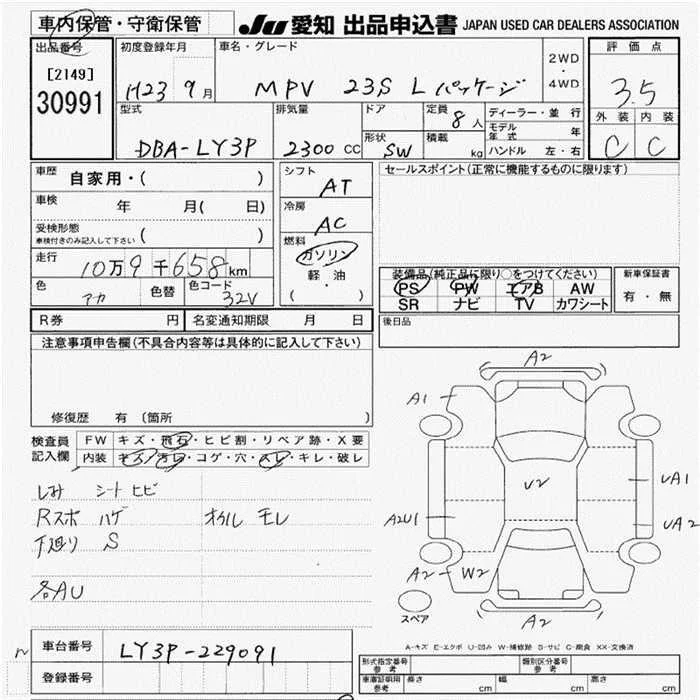 車内保管・守衛保管 JU 愛知 出品申込書 JAPAN USED CAR DEALERS ASSOCIATION
出品番号 初度登録年月 車名・グレード 評価点
[2149]
30991 H23 9月 MPV 23S Lパッケージ 2WD・4WD 3.5
型式 排気量 ドア 定員 8人 ディーラー・並行 外装 内装
モデル年式 年
DBA-LY3P 2300cc 形状 SW 積載 kg ハンドル 左・右 C C
車歴 自家用・( ) シフト AT セールスポイント(正常に機能するものに限ります)
車検 年 月( 日) 冷房 AC
受検形態
車検付きのみ記入して下さい ( ) 燃料 ガソリン
走行 10万9千658km 軽油 装備品(純正品に限り○をつけてください) 新車保証書
色 アカ 色替 色コード 32V ( ・ ) PS PW エアB AW 有・無
SR ナビ TV カワシート
R券 円 名変通知期限 月 日 後日品
注意事項申告欄(不具合内容等は具体的に記入して下さい)
修復歴 有 〔箇所 〕
検査員記入欄 FW キズ・飛石・ヒビ割・リペア跡・X要
内装 キズ・汚レ・コゲ・穴・スレ・キレ・破レ
しみ シートヒビ
Rスポ ハゲ オイル モレ
下廻り S
各AU
A2
A1
U2
UA1
A2U1
UA2
A2 W2
A2
スペア
A-キズ E-エクボ U-凹み W-補修跡 S-サビ C-腐食 XX-交換済
車台番号 LY3P-229091
登録番号
形式指定番号 参考 類別区分番号 参考
車庫証明用 参考 長さ cm 幅 cm 高さ cm